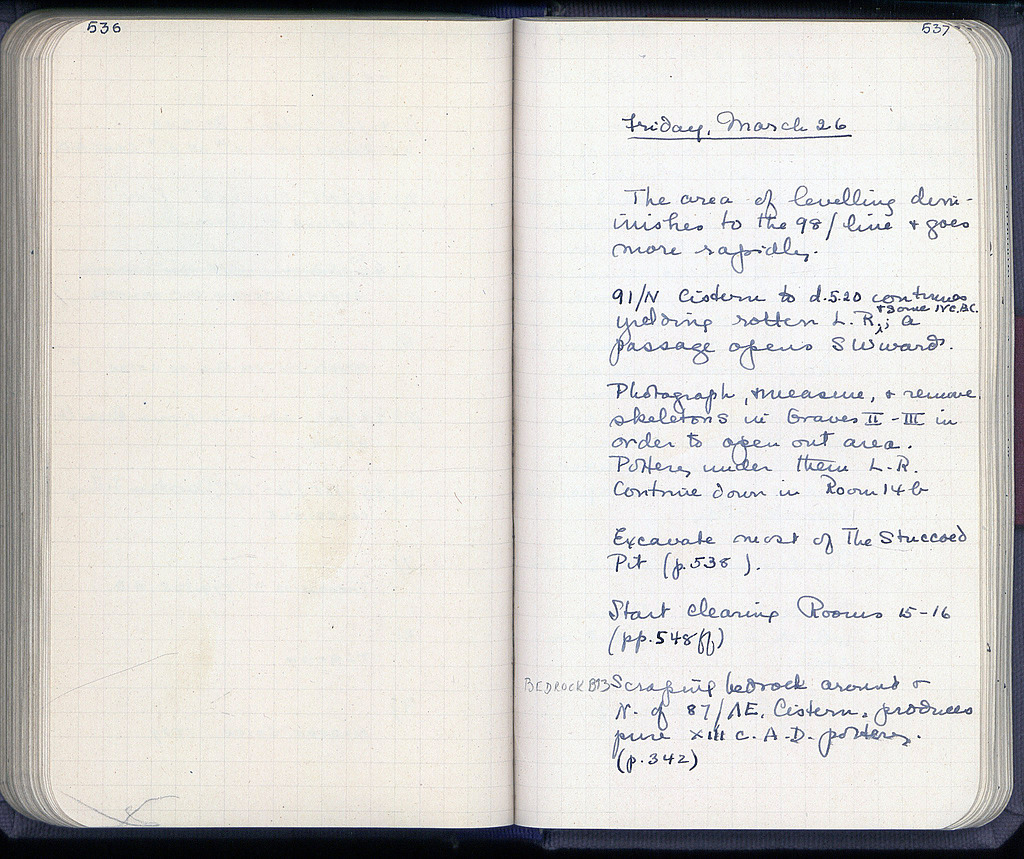 536
537
Friday, March 26
The area of levelling dimi-
inishes to the 98/ line + goes
more rapidly.
91/N Cistern to d.5.20 continues
+ some IV c. B.C.
yielding rotten L. R.; a
passage opens SWward.
Photograph, measure, & remove
skeletons in Graves II - III in
order to open out area.
Pottery under them L-R.
Continue down in Room 14b
Excavate most of The Stuccoed
Pit (p.538).
Start clearing Rooms 15-16
(pp.548ff)
BEDROCK B13
Scraping bedrock around &
N. of 87/ΛE, Cistern, produces
pure XIII c. A.D. pottery.
(p.342)